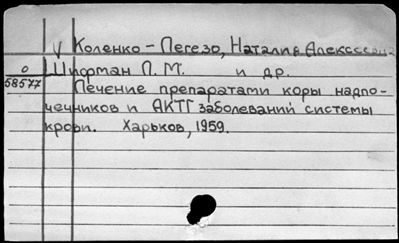 √ Коленко-Пегезо, Наталия Алексеевна
о Шифман Л. М. и др.
58577 Лечение препаратами коры надпо-
чечников и АКТГ заболеваний системы
крови. Харьков, 1959.